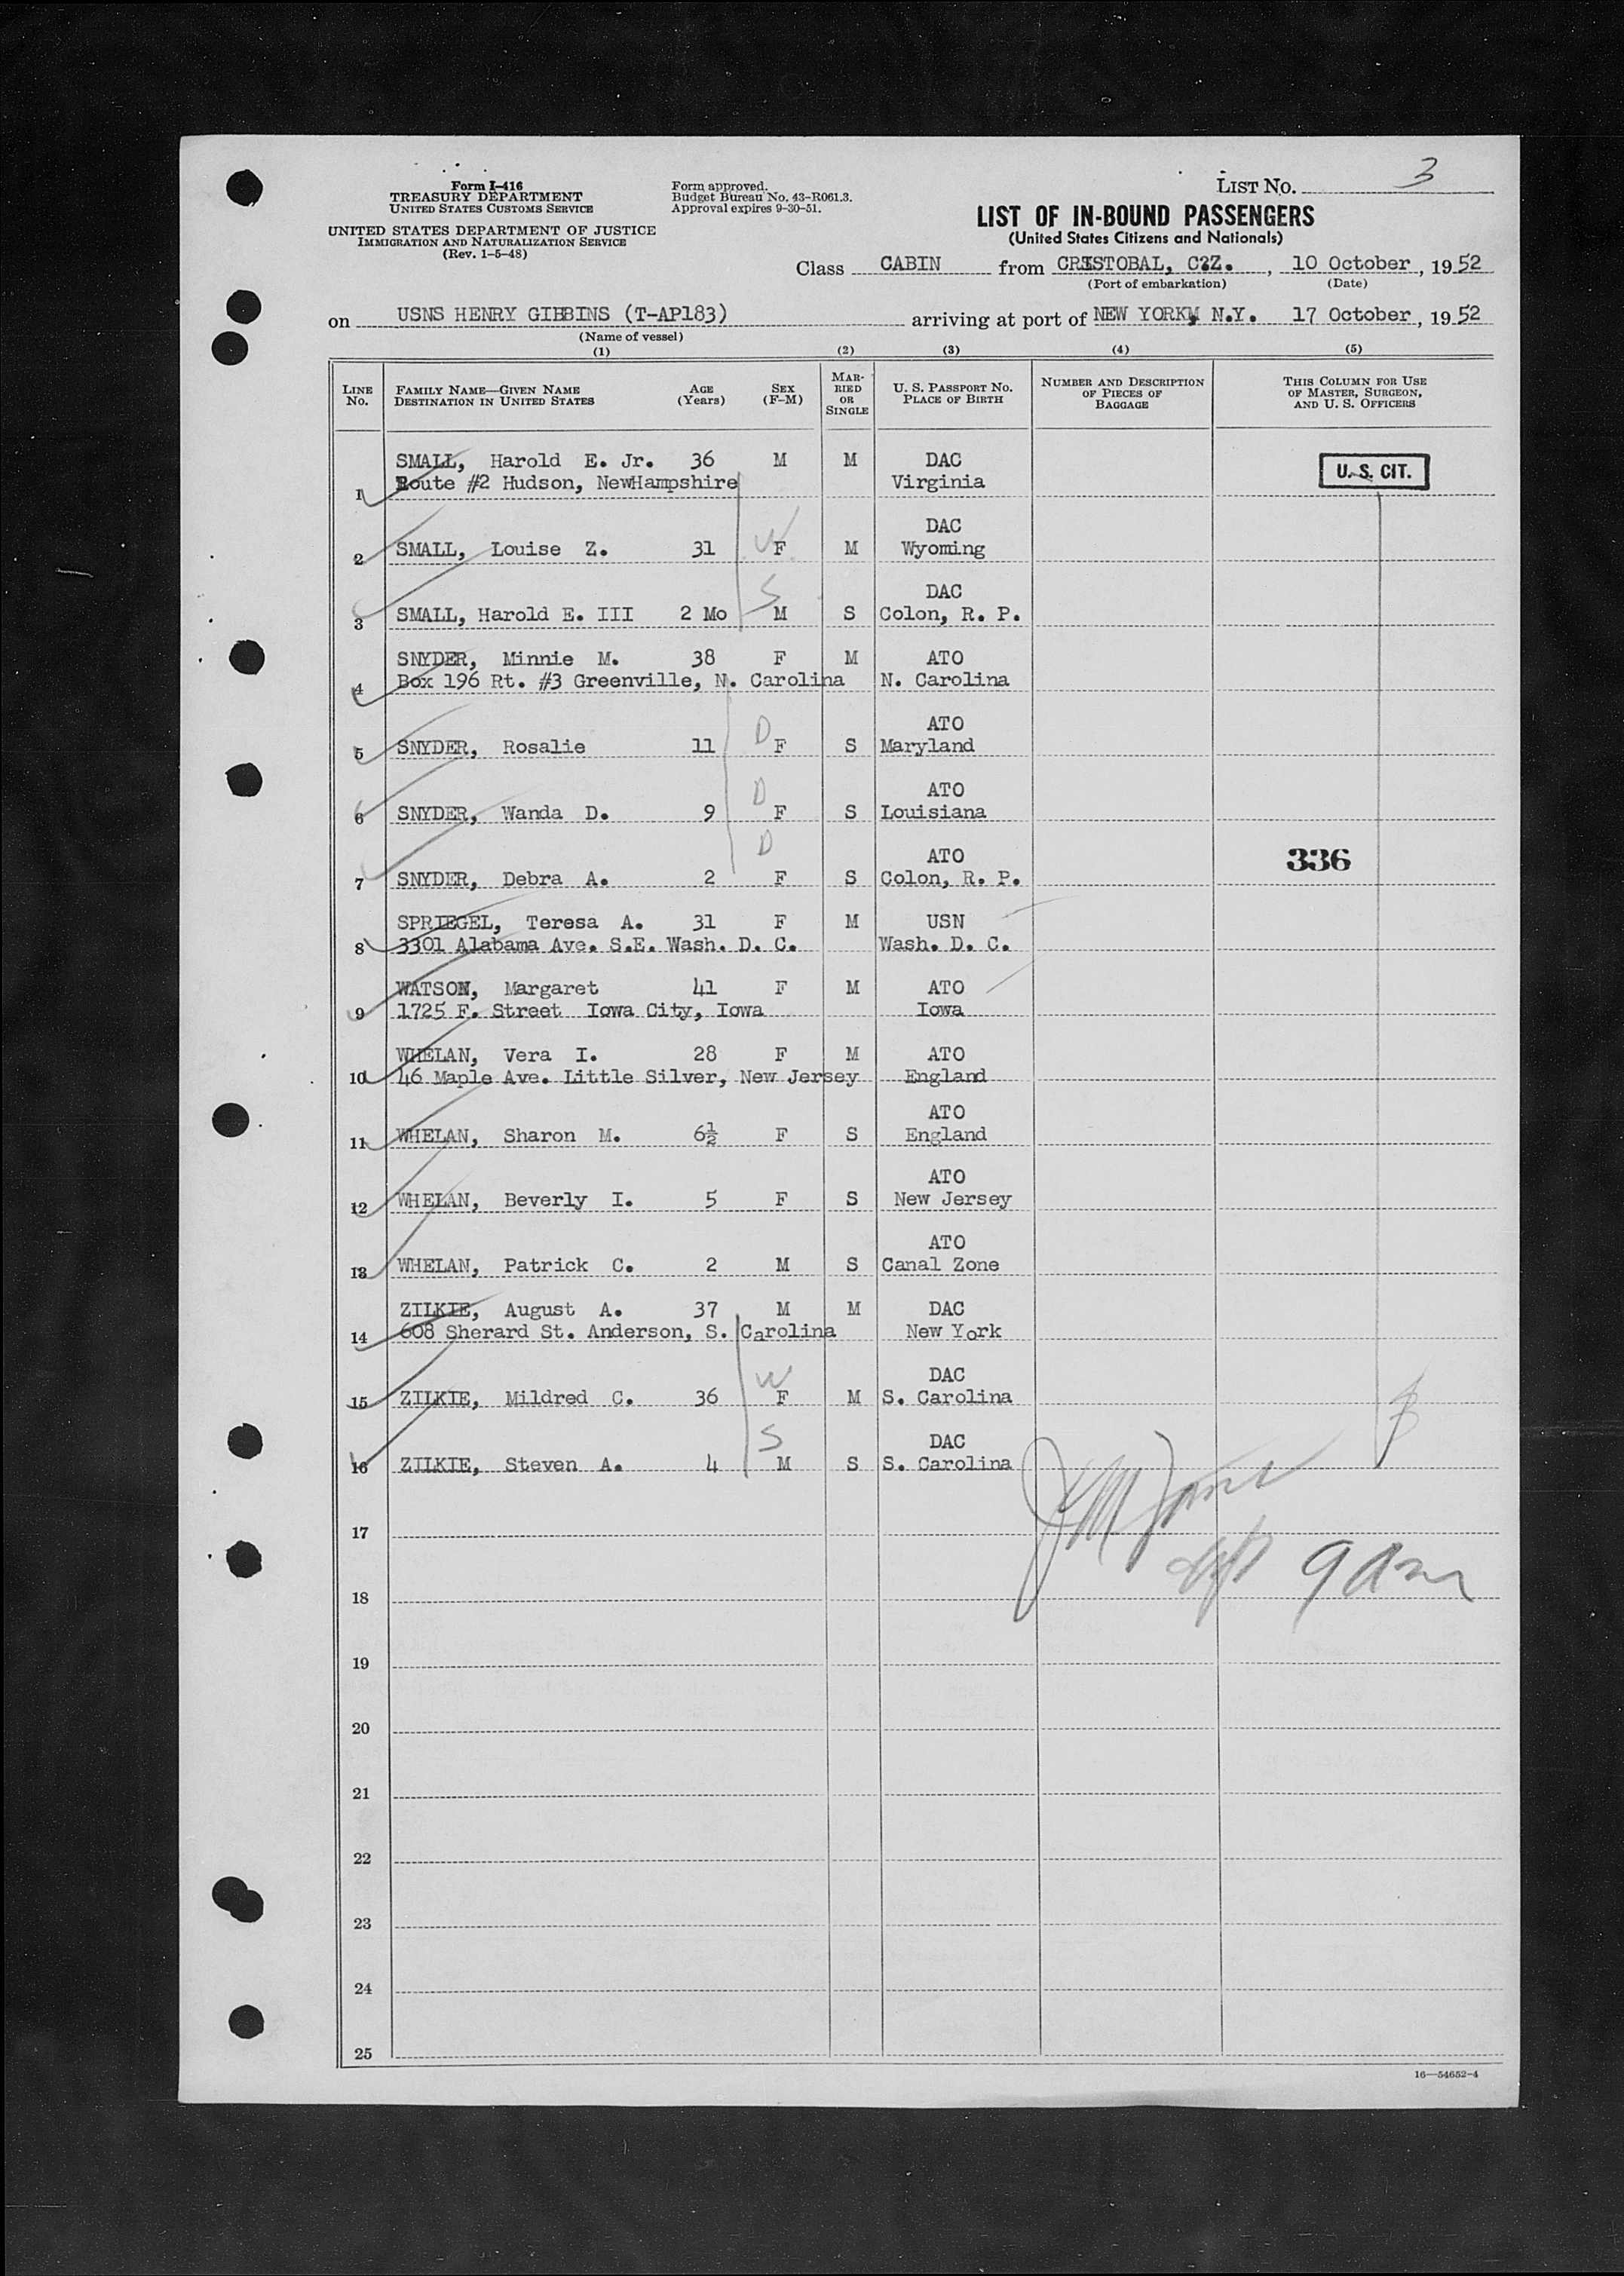 Form I-416
TREASURY DEPARTMENT
UNITED STATES CUSTOMS SERVICE
UNITED STATES DEPARTMENT OF JUSTICE
IMMIGRATION AND NATURALIZATION SERVICE
(Rev. 1-5-48)
Form approved.
Budget Bureau No. 43-R061.3.
Approval expires 9-30-51.
LIST NO. 3
LIST OF IN-BOUND PASSENGERS
(United States Citizens and Nationals)
Class CABIN from CRISTOBAL, C.Z., 10 October, 1952
(Port of embarkation) (Date)
on USNS HENRY GIBBINS (T-AP183) arriving at port of NEW YORK, N.Y. 17 October, 1952
(Name of vessel)
(1) (2) (3) (4) (5)
LINE NO. FAMILY NAME—GIVEN NAME DESTINATION IN UNITED STATES AGE (Years) SEX (F-M) MARRIED OR SINGLE U. S. PASSPORT NO. PLACE OF BIRTH NUMBER AND DESCRIPTION OF PIECES OF BAGGAGE THIS COLUMN FOR USE OF MASTER, SURGEON, AND U. S. OFFICERS
SMALL, Harold E. Jr. 36 M M DAC U. S. CIT.
1 Route #2 Hudson, NewHampshire Virginia
DAC
2 SMALL, Louise Z. 31 W F M Wyoming
DAC
3 SMALL, Harold E. III 2 Mo S M S Colon, R. P.
SNYDER, Minnie M. 38 F M ATO
4 Box 196 Rt. #3 Greenville, N. Carolina N. Carolina
ATO
5 SNYDER, Rosalie 11 D F S Maryland
ATO
6 SNYDER, Wanda D. 9 D F S Louisiana
D ATO 336
7 SNYDER, Debra A. 2 F S Colon, R. P.
SPRIEGEL, Teresa A. 31 F M USN
8 3301 Alabama Ave. S.E. Wash. D. C. Wash. D. C.
WATSON, Margaret 41 F M ATO
9 1725 F. Street Iowa City, Iowa Iowa
WHELAN, Vera I. 28 F M ATO
10 46 Maple Ave. Little Silver, New Jersey England
ATO
11 WHELAN, Sharon M. 6½ F S England
ATO
12 WHELAN, Beverly I. 5 F S New Jersey
ATO
13 WHELAN, Patrick C. 2 M S Canal Zone
ZILKIE, August A. 37 M M DAC
14 608 Sherard St. Anderson, S. Carolina New York
DAC
15 ZILKIE, Mildred C. 36 W F M S. Carolina
DAC
16 ZILKIE, Steven A. 4 S M S S. Carolina
17
9 am
18
19
20
21
22
23
24
25
16—54652-4